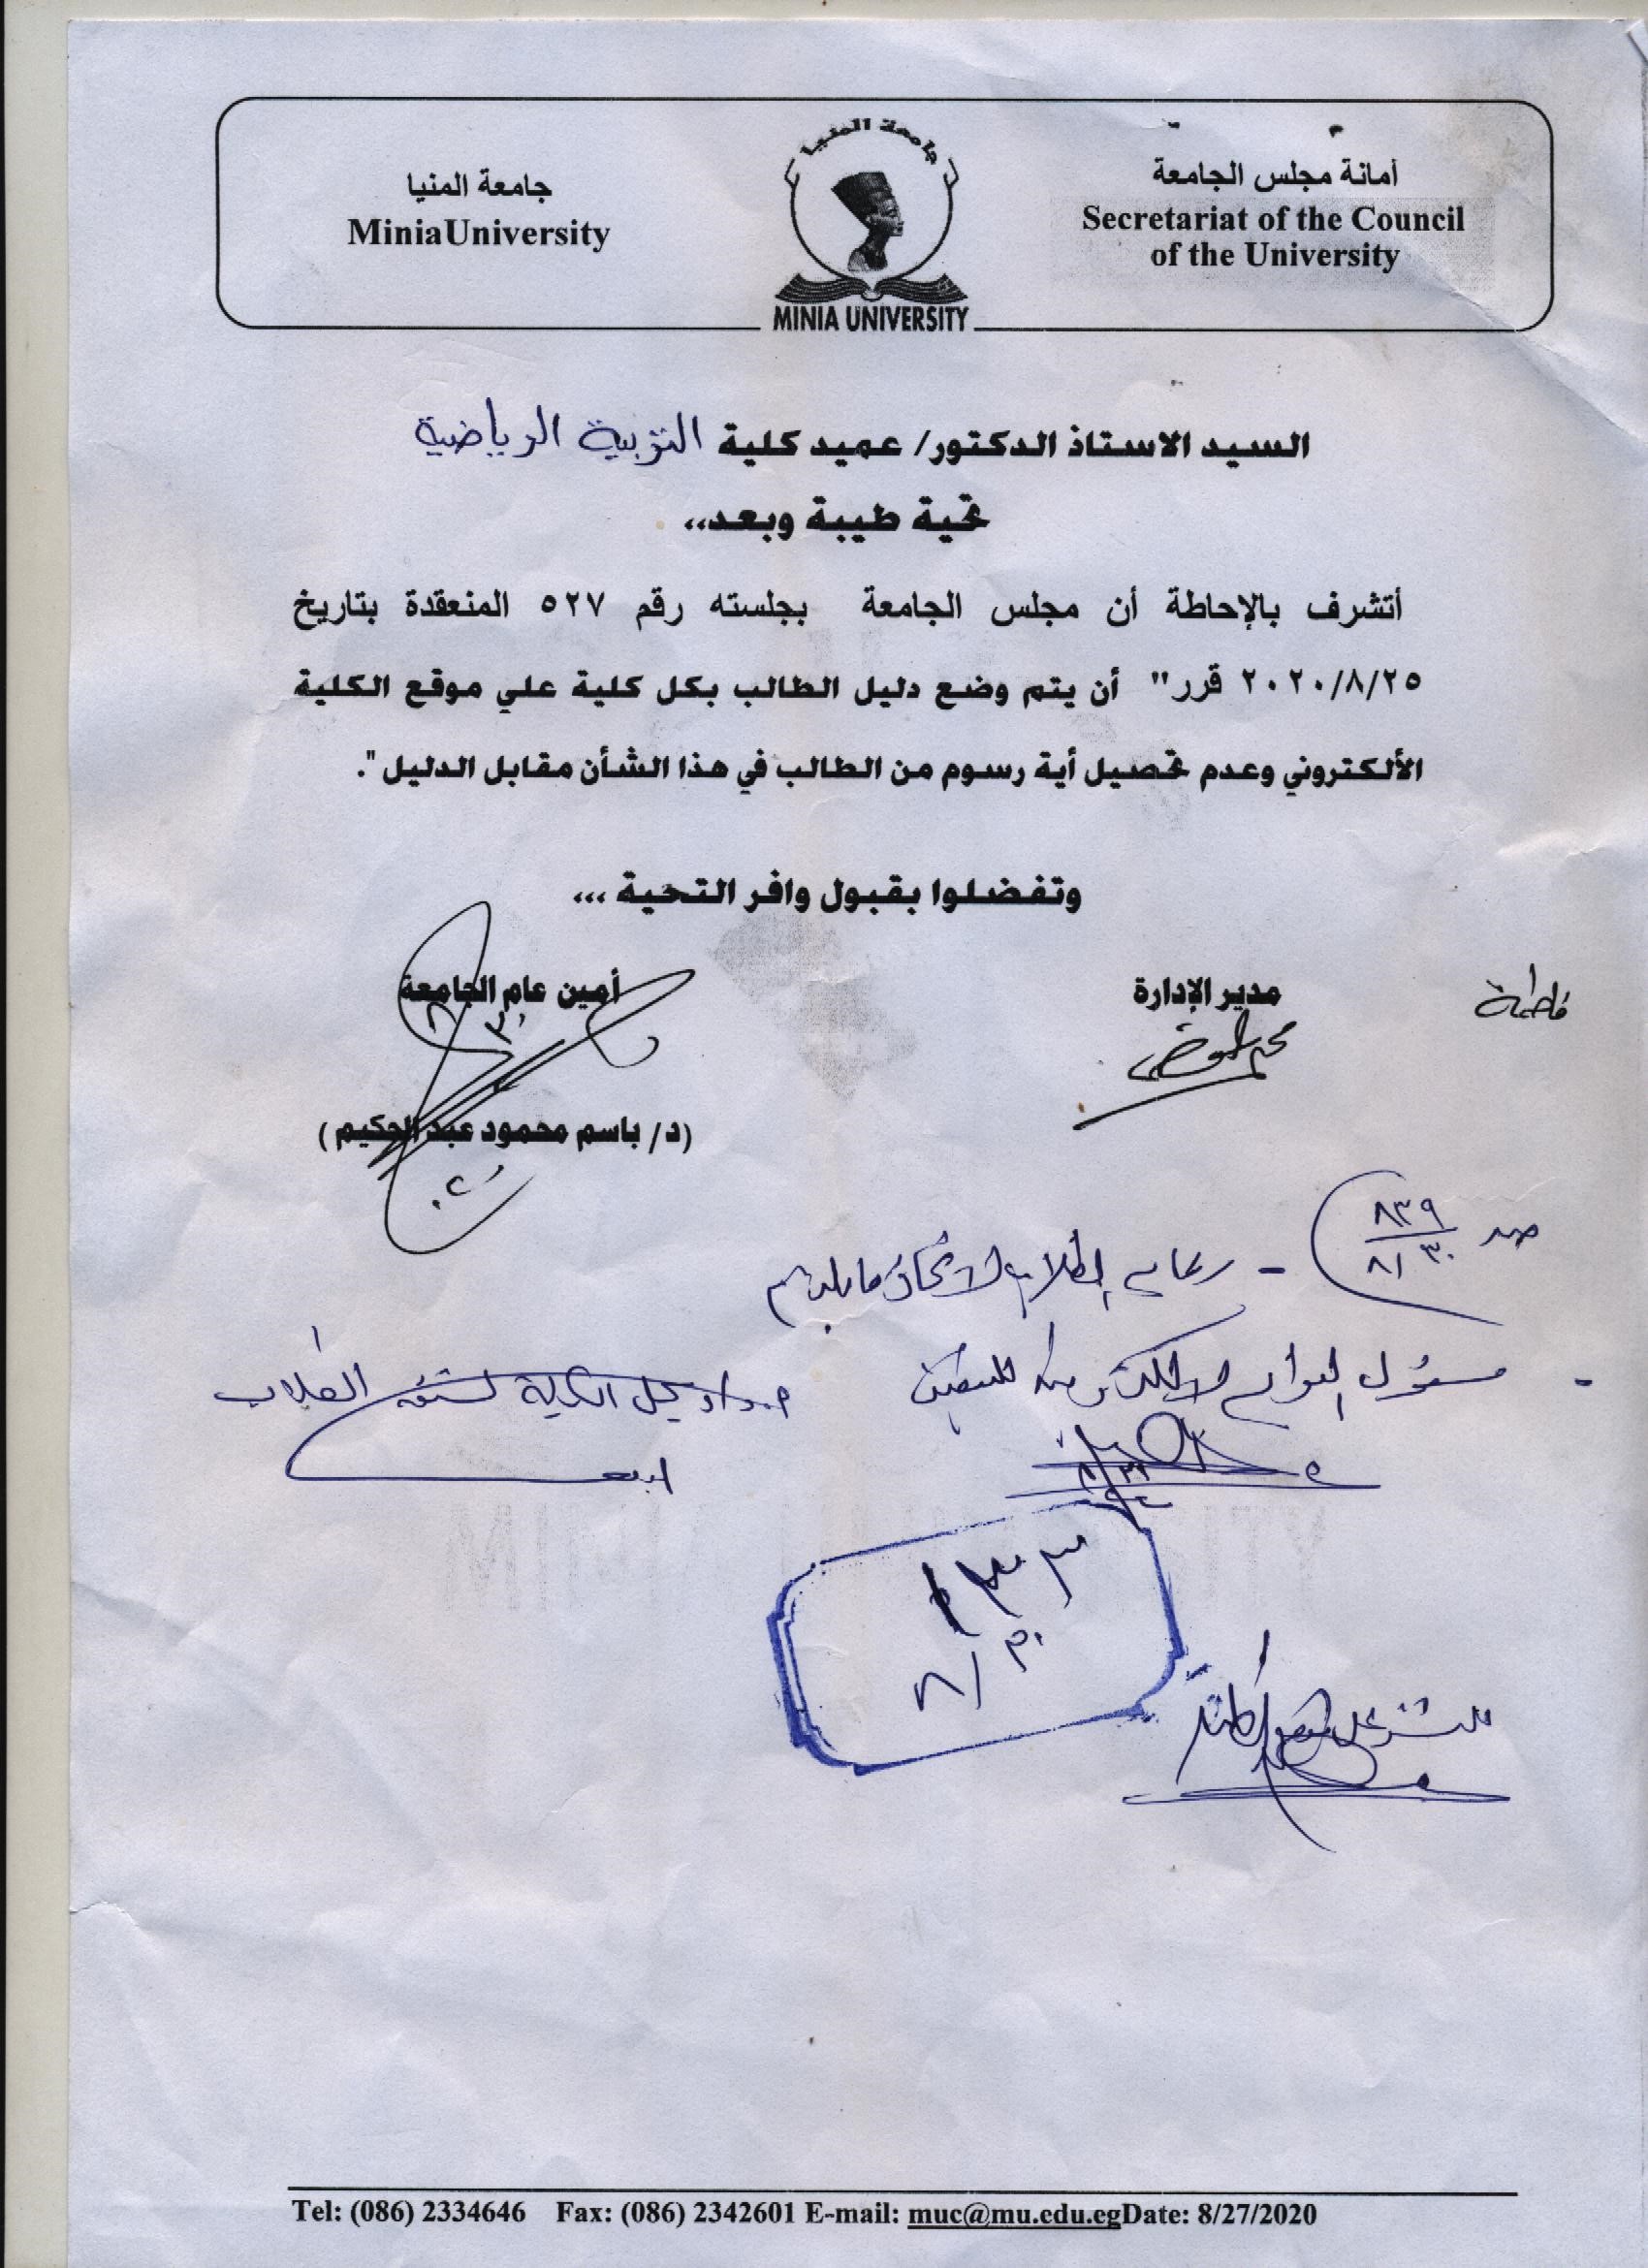 أمانة مجلس الجامعة
Secretariat of the Council
of the University
جامعة المنيا
MINIA UNIVERSITY
جامعة المنيا
MiniaUniversity
السيد الاستاذ الدكتور/ عميد كلية التربية الرياضية
تحية طيبة وبعد،،
أتشرف بالإحاطة أن مجلس الجامعة بجلسته رقم ٥٢٧ المنعقدة بتاريخ
٢٠٢٠/٨/٢٥ قرر" أن يتم وضع دليل الطالب بكل كلية علي موقع الكلية
الألكتروني وعدم تحصيل أية رسوم من الطالب في هذا الشأن مقابل الدليل".
وتفضلوا بقبول وافر التحية ...
فاطمة
مدير الإدارة
أمين عام الجامعة
(د/ باسم محمود عبد الحكيم )
٨٣٩
٨/٣٠
وكيل الكلية لشئون الطلاب
١٣٣
٨/٣٠
Tel: (086) 2334646 Fax: (086) 2342601 E-mail: muc@mu.edu.egDate: 8/27/2020